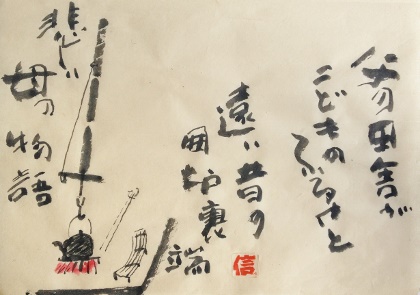 父の田舎が
こどもの
ふるさと
遠い昔の
囲炉裏端
悲しい
母の物語
信